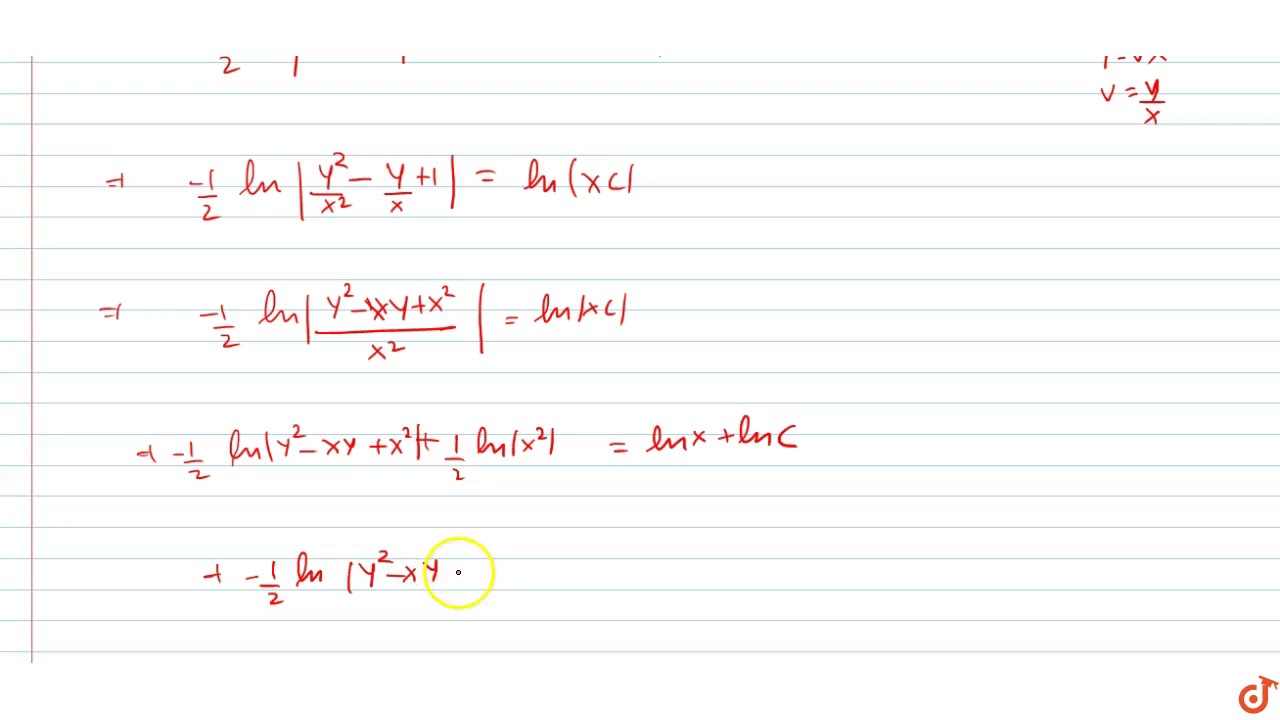 v = y/x
⇒ -1/2 ln |y²/x² - y/x + 1| = ln(xc|
⇒ -1/2 ln|(y² - xy + x²)/x²| = ln|xc|
⇒ -1/2 ln|y² - xy + x²| + 1/2 ln|x²| = ln x + ln c
⇒ -1/2 ln |y² - xy